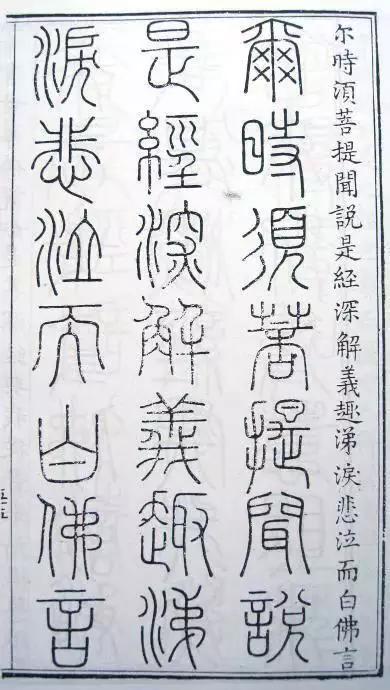 尔時湏菩提聞說是経深解義趣涕淚悲泣而白佛言
爾時須菩提聞說
是經深解義趣涕
淚悲泣而白佛言
五五